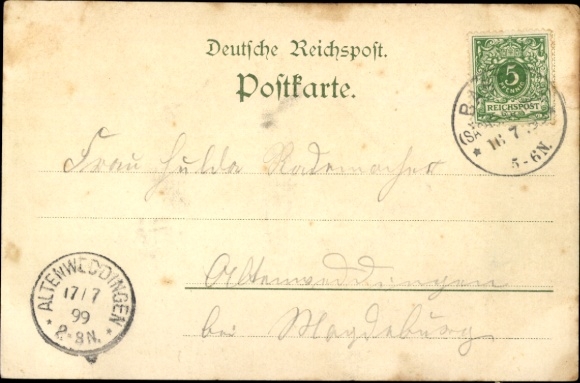 Deutsche Reichspost.
Postkarte.
5
REICHSPOST
16 7
5-6N.
Frau Hulda Rademacher
Altenweddingen
bei Magdeburg
ALTENWEDDINGEN
17/7
99
2-3N.